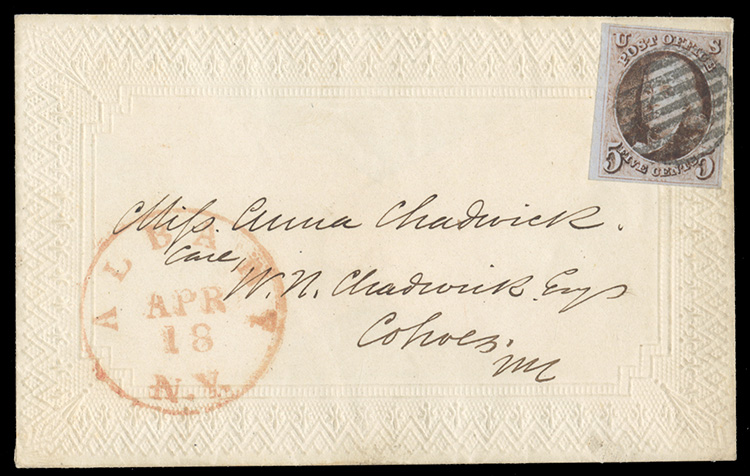 U S
POST OFFICE
5 FIVE CENTS 5
Miss. Anna Chadwick.
Care,
W. N. Chadwick Esq
Cohoes,
ALBANY
APR
18
N.Y.